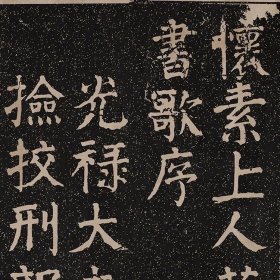 懷素上人草
書歌序
光祿大夫
撿挍刑部